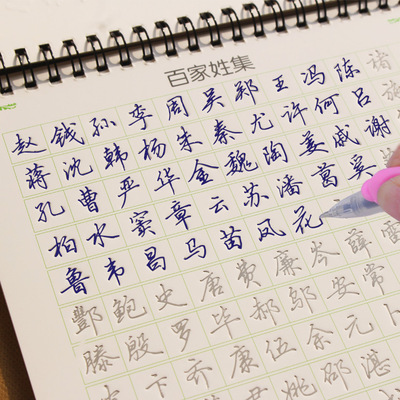 百家姓集
赵钱孙李周吴郑王冯陈褚
蒋沈韩杨朱秦尤许何吕施
孔曹严华金魏陶姜戚谢
柏水窦章云苏潘葛奚
鲁韦昌马苗凤花
酆鲍史唐费廉岑薛雷
滕殷罗毕郝邬安常
卞齐康伍余元卜
姚邵湛